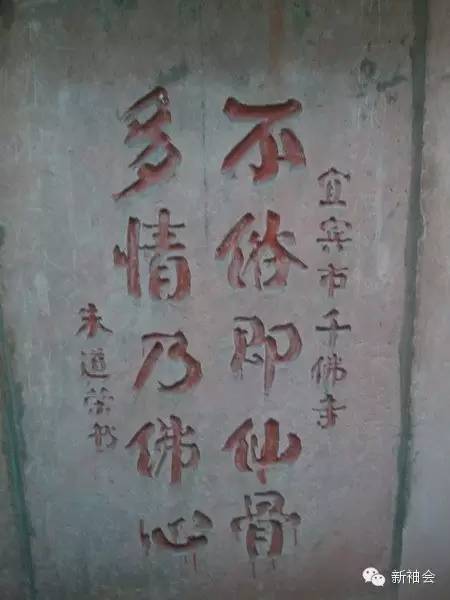 宜宾市千佛寺
不俗即仙骨
多情乃佛心
朱道荣书
新袖会